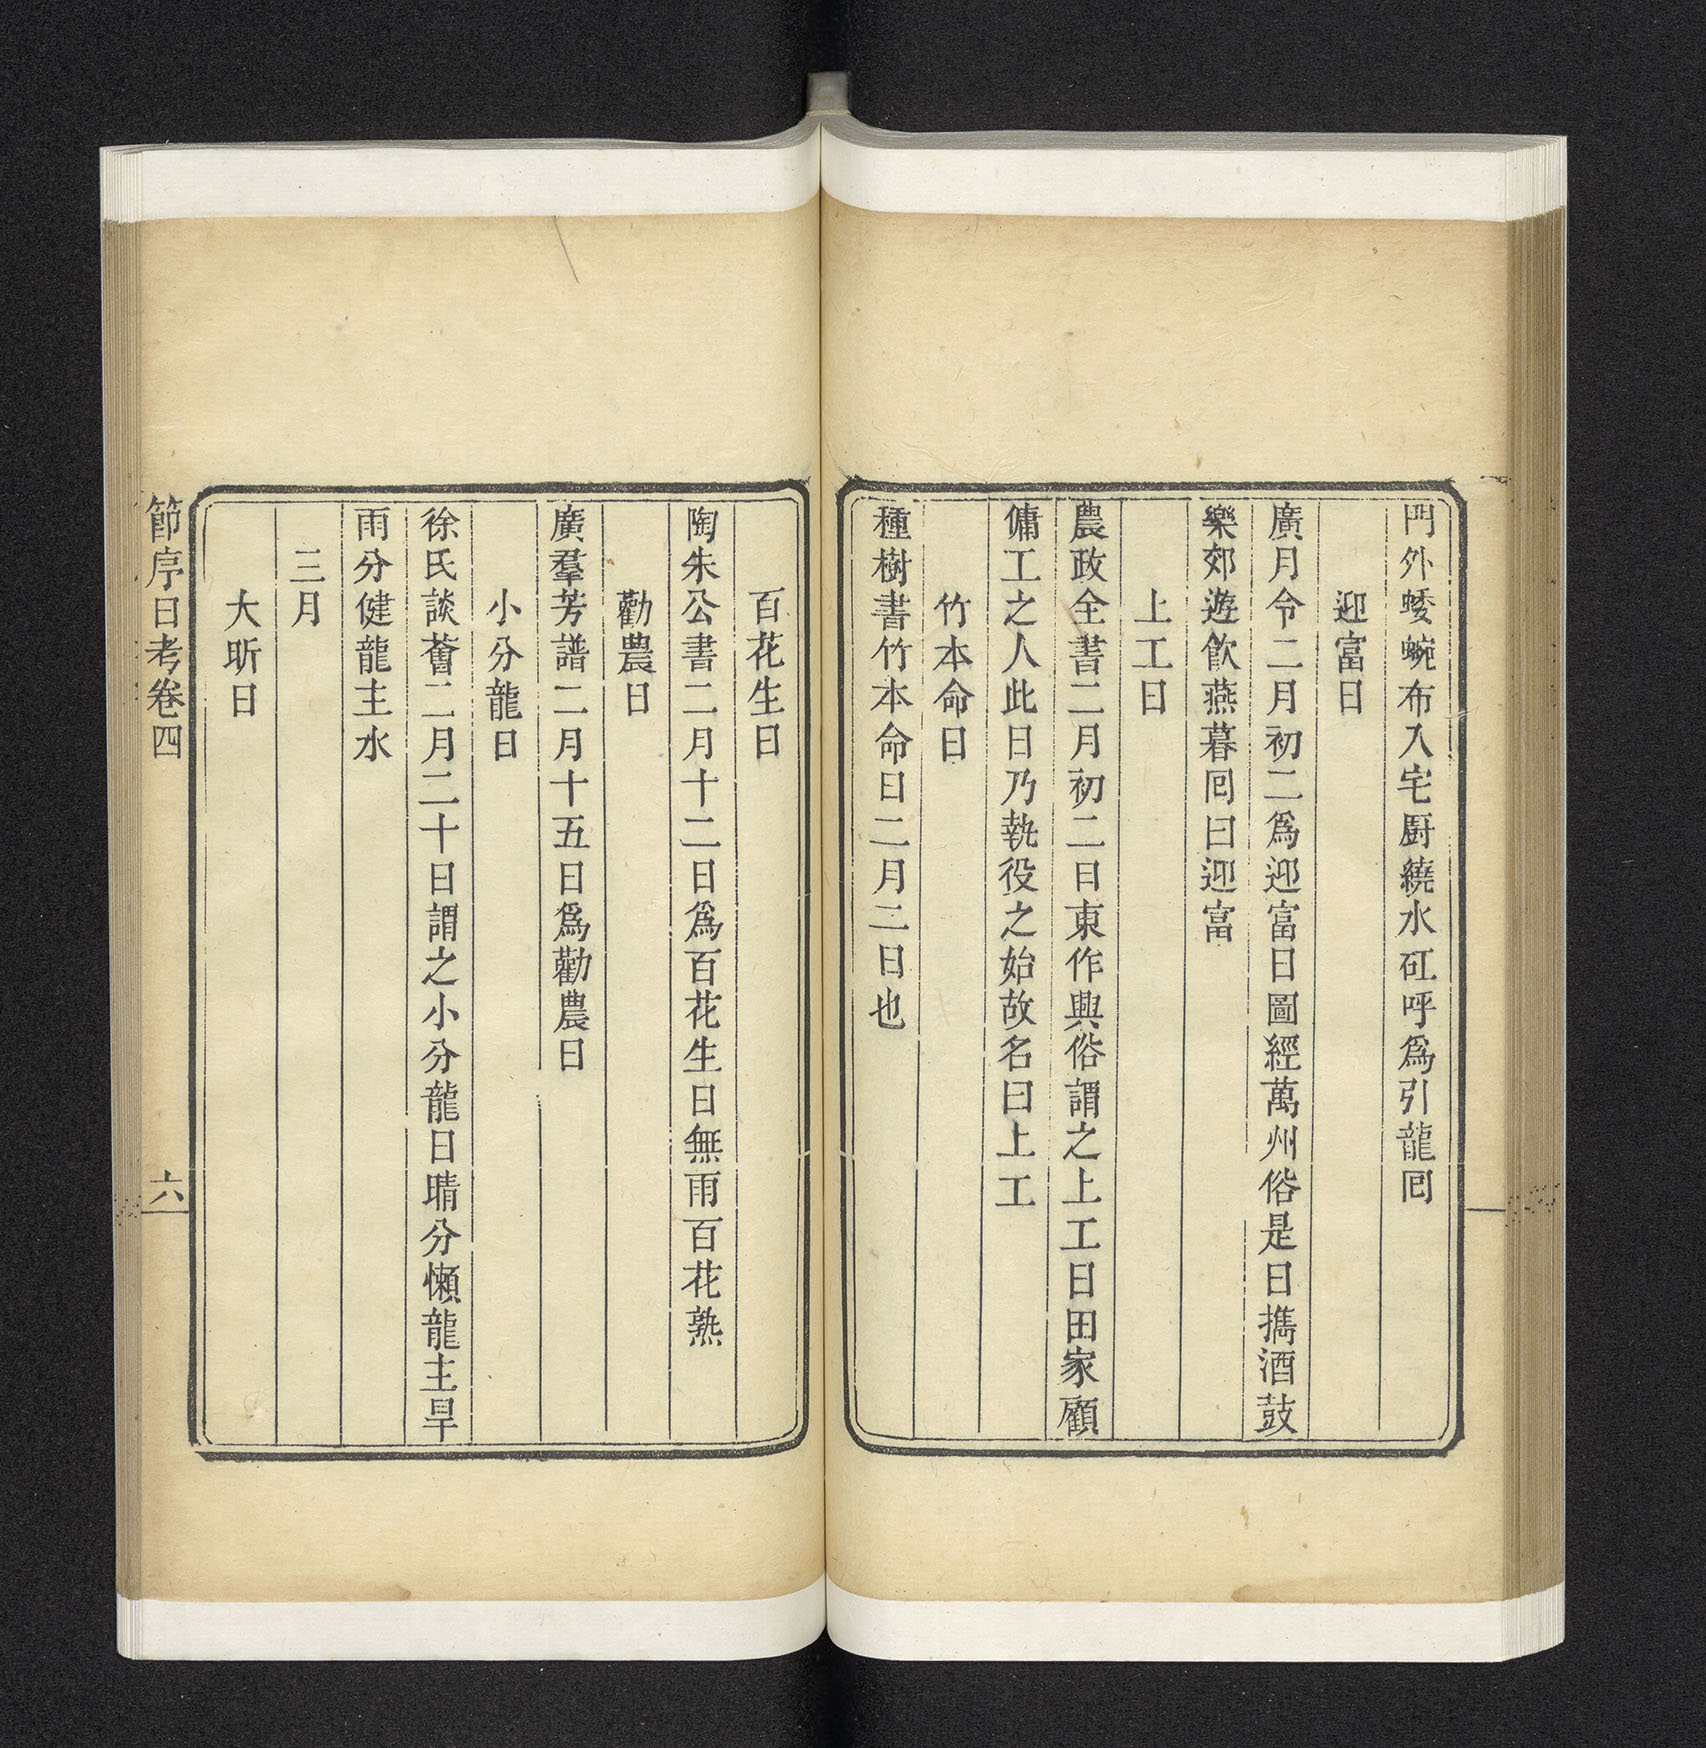 門外蜲蜿布入宅廚繞水矼呼爲引龍囘
迎富日
廣月令二月初二爲迎富日圖經萬州俗是日攜酒鼓
樂郊遊飲燕暮囘曰迎富
上工日
農政全書二月初二日東作興俗謂之上工日田家顧
傭工之人此日乃執役之始故名曰上工
竹本命日
種樹書竹本命日二月二日也
百花生日
陶朱公書二月十二日爲百花生日無雨百花熟
勸農日
廣羣芳譜二月十五日爲勸農日
小分龍日
徐氏談薈二月二十日謂之小分龍日晴分懶龍主旱
雨分健龍主水
三月
大昕日
節序日考卷四
六